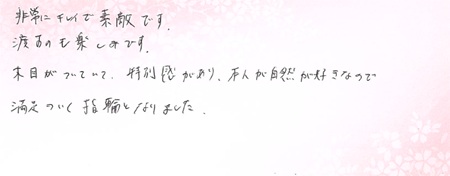 非常にキレイで素敵です。
渡すのも楽しみです。
木目がついていて、特別感があり、本人が自然が好きなので
満足のいく指輪となりました。